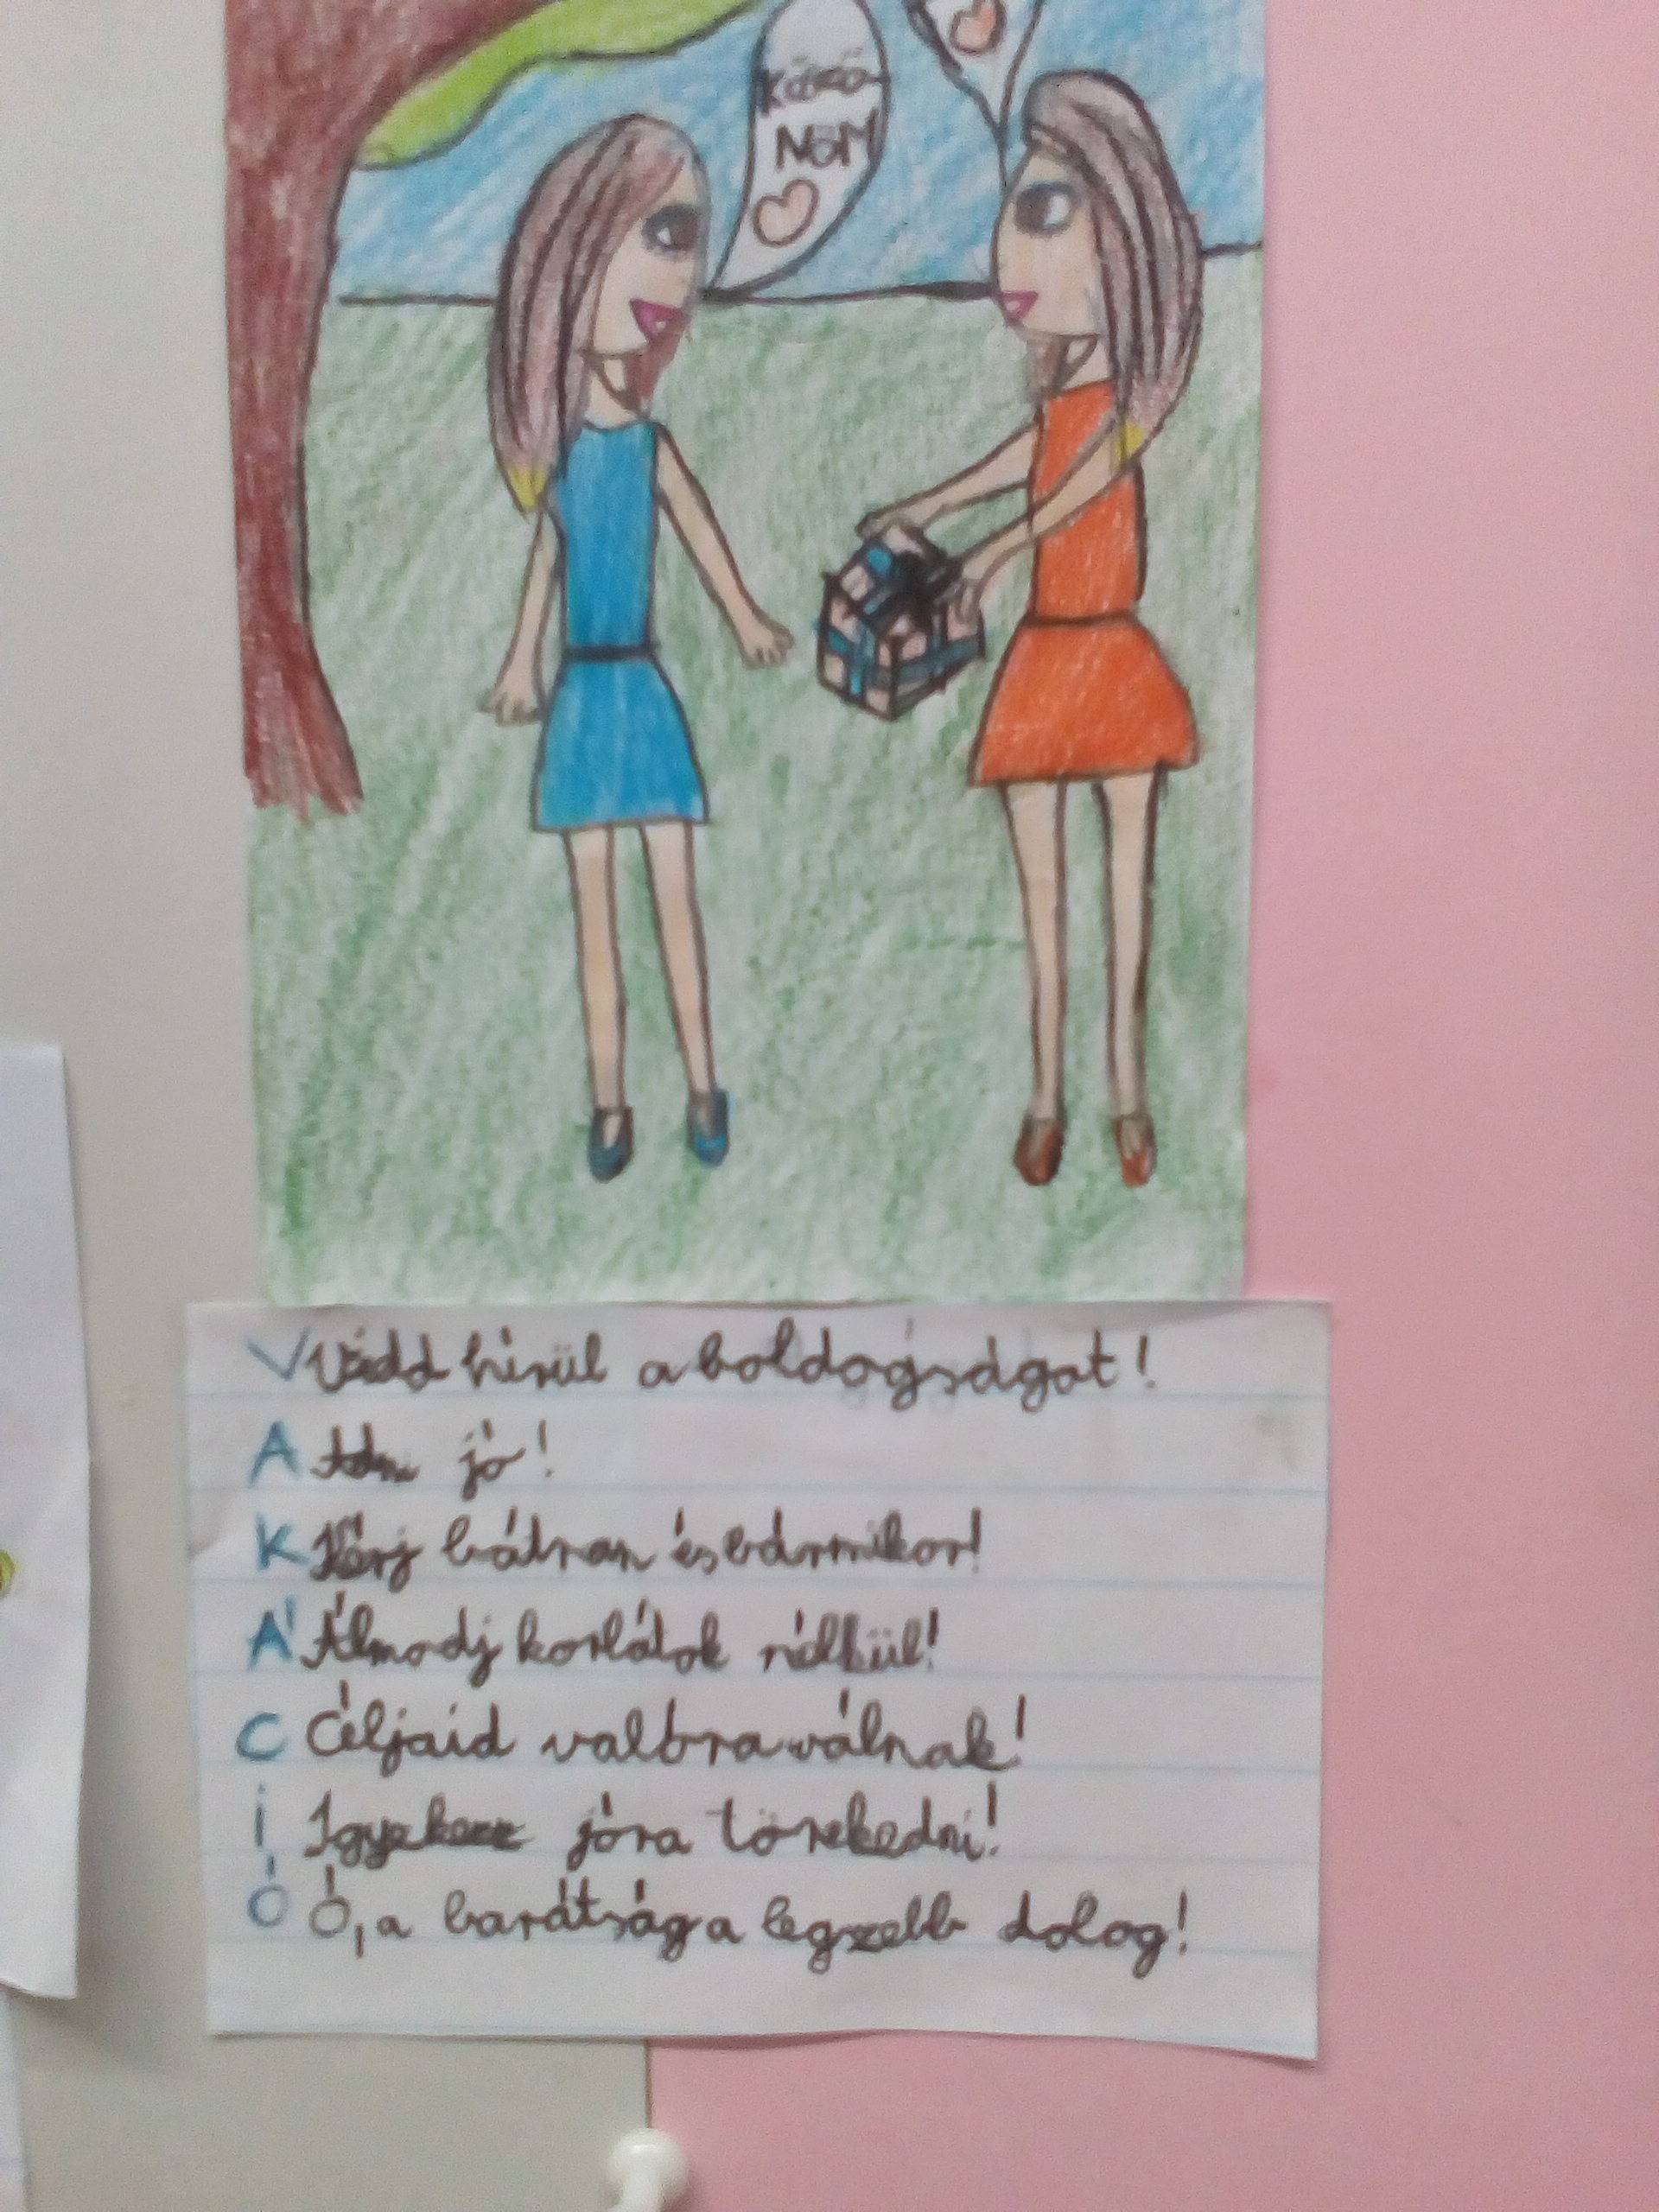 KÖSZÖ-
NÖM
V Védd hírül a boldogságot!
A Adni jó!
K Kérj bátran és bármikor!
Á Álmodj korlátok nélkül!
C Céljaid valóra válnak!
I Igyekezz jóra törekedni!
Ó Ó, a barátság a legszebb dolog!